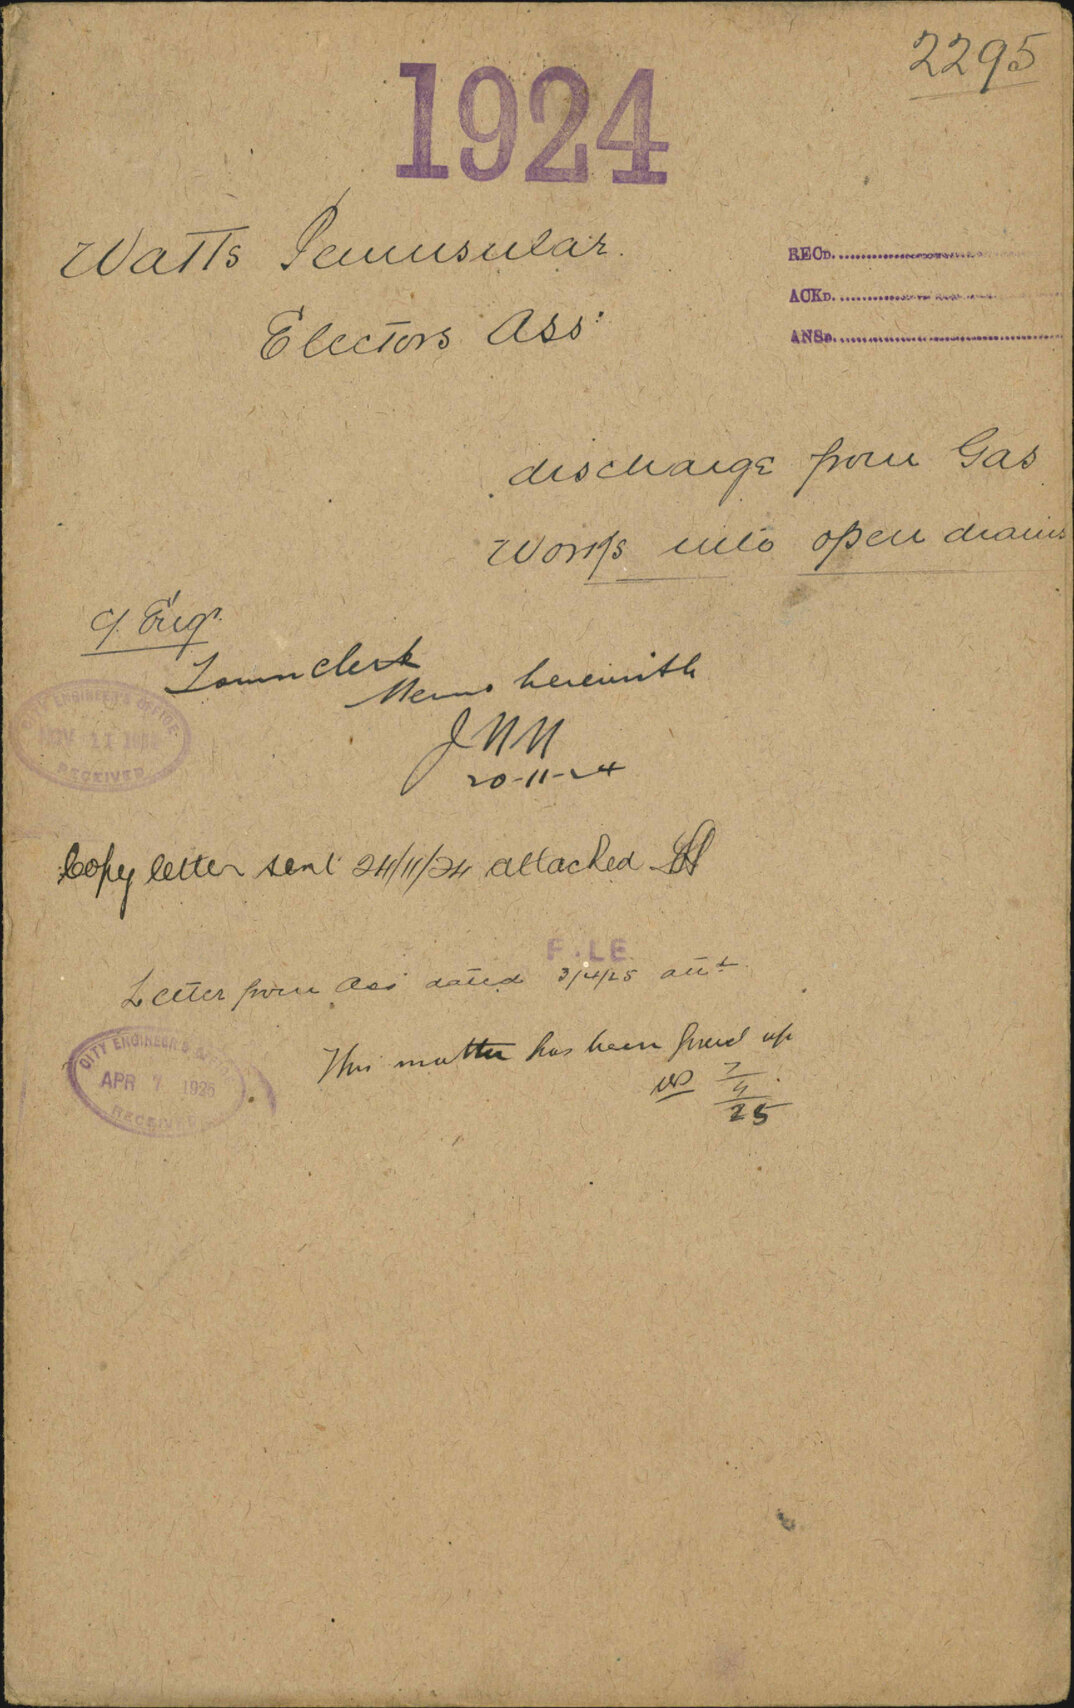 2295
1924
Watts Peninsular
Electors Ass:
RECD.
ACKD.
ANSD.
discharge from Gas
Works into open drains
C/. Engr.
Town Clerk
Memo herewith
20-11-24
CITY ENGINEER'S OFFICE
NOV 11
RECEIVED
Copy letter sent 24/11/24 attached
FILE
Letter from Ass: dated 3/4/25 att
CITY ENGINEER'S OFFICE
APR 7 1925
RECEIVED
This matter has been fixed up
7
4
25